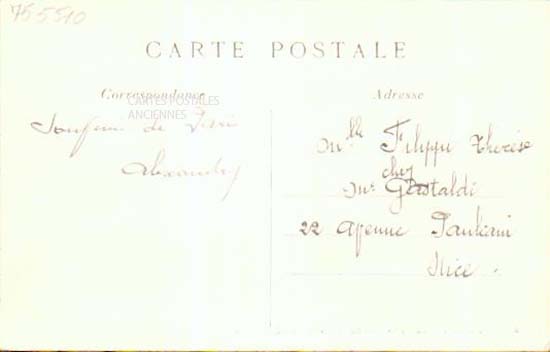 755510
CARTE POSTALE
Correspondance
CARTES POSTALES
ANCIENNES
de
Alexandry
Adresse
Mlle Filippi Thérèse
chez
Mr Gastaldi
22 Avenue
Nice.